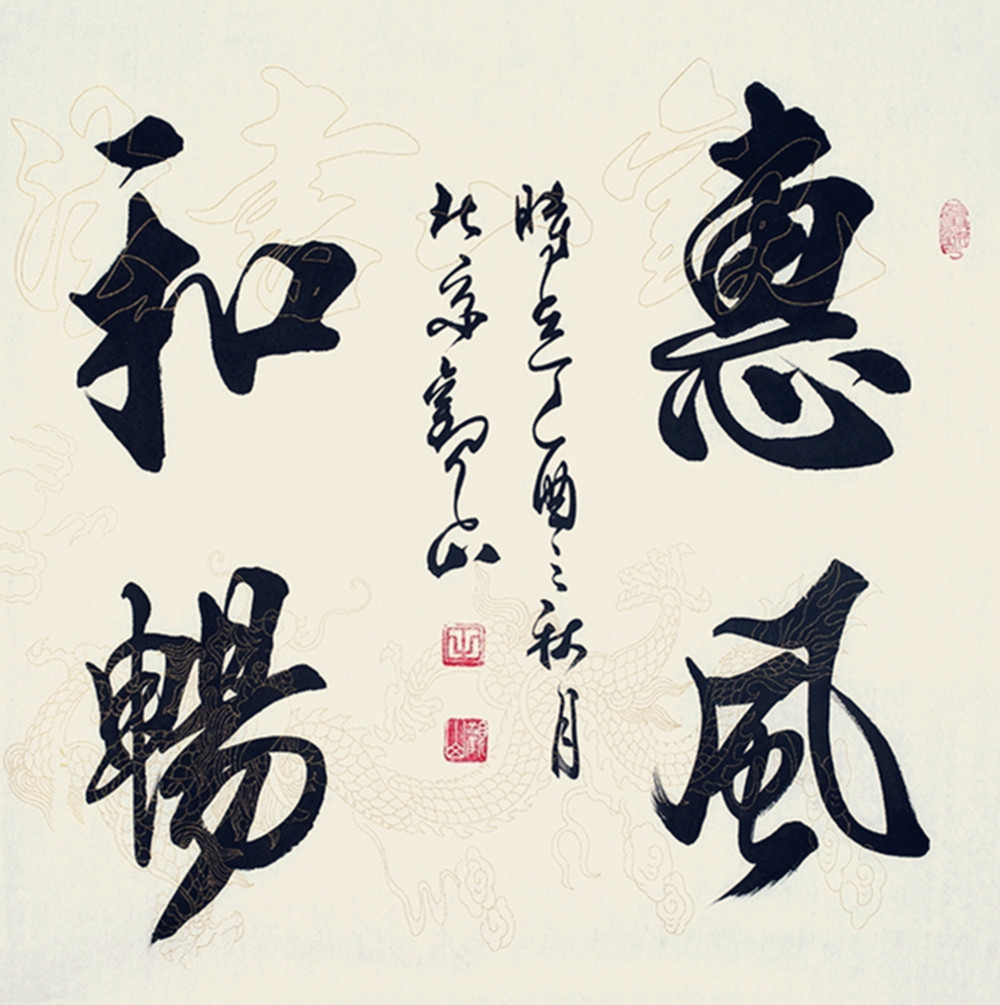 惠風
和暢
時在丁酉之秋月
北京山